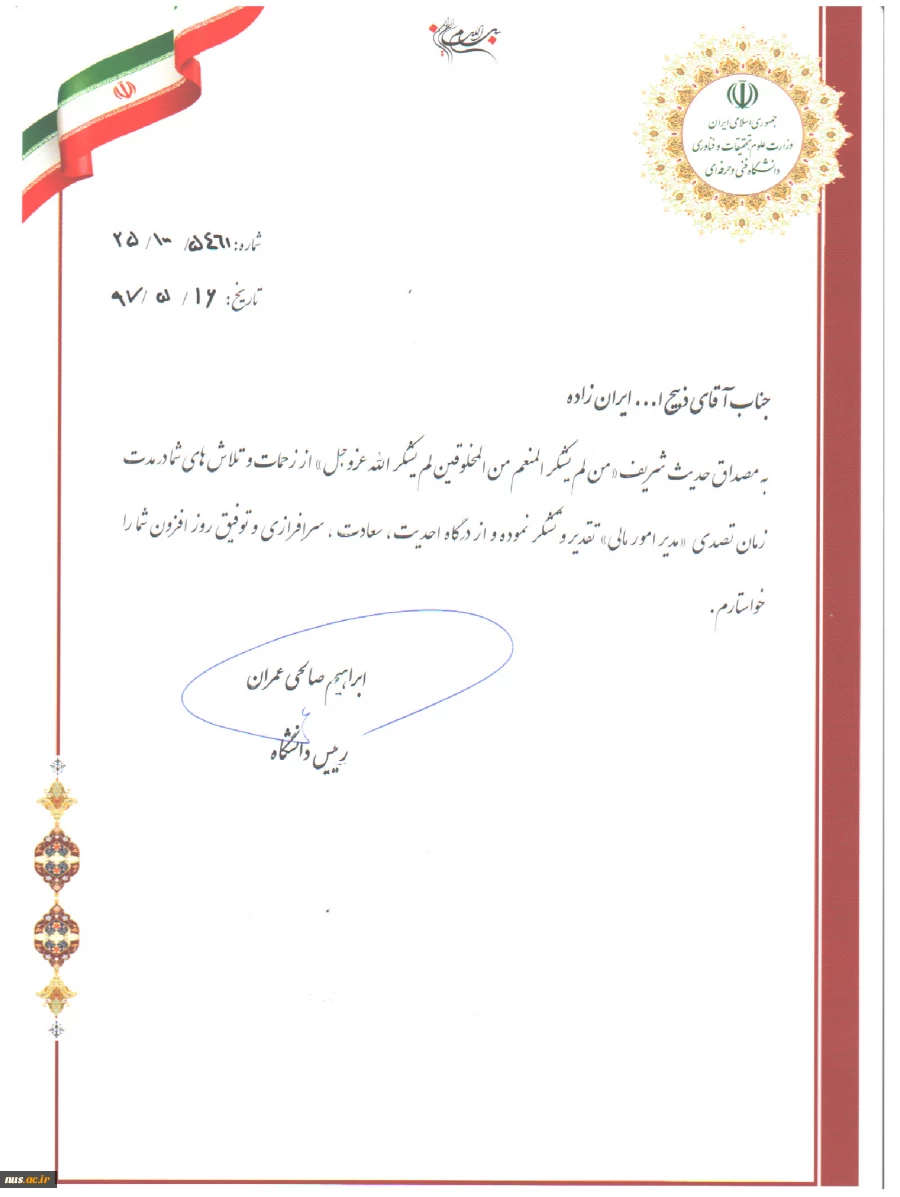 بسم الله الرحمن الرحیم
جمهوری اسلامی ایران
وزارت علوم تحقیقات و فناوری
دانشگاه فنی و حرفه‌ای
شماره: ۲۵/۱۰۰/۵۴۶۱
تاریخ: ۹۷/۵/۱۶
جناب آقای ذبیح ا... ایران زاده
به مصداق حدیث شریف «من لم یشکر المنعم من المخلوقین لم یشکر الله عزوجل» از زحمات و تلاش های شما در مدت
زمان تصدی «مدیر امور مالی» تقدیر و تشکر نموده و از درگاه احدیت، سعادت، سرافرازی و توفیق روز افزون شما را
خواستارم.
ابراهیم صالحی عمران
رییس دانشگاه
nus.ac.ir